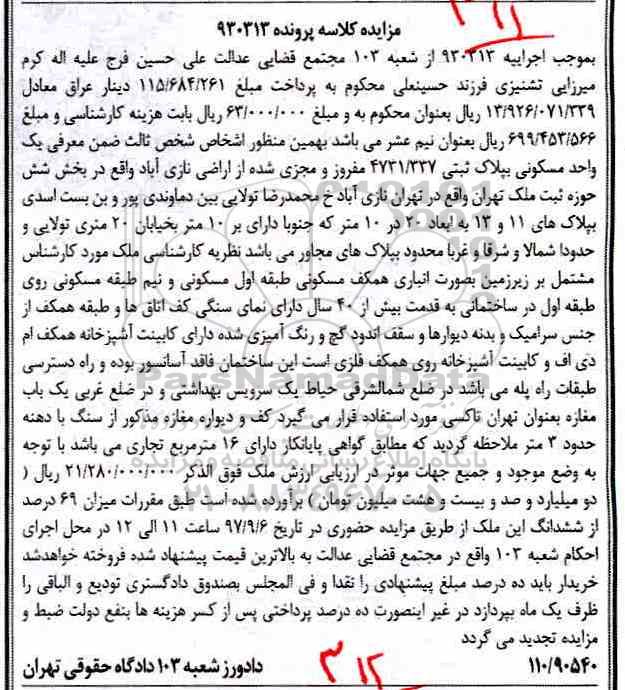 ۳۱۱
مزایده کلاسه پرونده ۹۳۰۳۱۳
بموجب اجراییه ۹۳۰۳۱۳ از شعبه ۱۰۳ مجتمع قضایی عدالت علی حسین فرج علیه اله کرم
میرزایی تشنیزی فرزند حسینعلی محکوم به پرداخت مبلغ ۱۱۵/۶۸۴/۲۶۱ دینار عراق معادل
۱۳/۹۲۶/۰۷۱/۳۳۹ ریال بعنوان محکوم به و مبلغ ۶۳/۰۰۰/۰۰۰ ریال بابت هزینه کارشناسی و مبلغ
۶۹۹/۴۵۳/۵۶۶ ریال بعنوان نیم عشر می باشد بهمین منظور اشخاص شخص ثالث ضمن معرفی یک
واحد مسکونی بپلاک ثبتی ۴۷۳۱/۳۳۷ مفروز و مجزی شده از اراضی نازی آباد واقع در بخش شش
حوزه ثبت ملک تهران واقع در تهران نازی آباد خ محمدرضا تولایی بین دماوندی پور و بن بست اسدی
بپلاک های ۱۱ و ۱۳ به ابعاد ۲۰ در ۱۰ متر که جنوبا دارای بر ۱۰ متر بخیابان ۲۰ متری تولایی و
حدودا شمالا و شرقا و غربا محدود بپلاک های مجاور می باشد نظریه کارشناسی ملک مورد کارشناس
مشتمل بر زیرزمین بصورت انباری همکف مسکونی طبقه اول مسکونی و نیم طبقه مسکونی روی
طبقه اول در ساختمانی به قدمت بیش از ۴۰ سال دارای نمای سنگی کف اتاق ها و طبقه همکف از
جنس سرامیک و بدنه دیوارها و سقف اندود گچ و رنگ آمیزی شده دارای کابینت آشپزخانه همکف ام
دی اف و کابینت آشپزخانه روی همکف فلزی است این ساختمان فاقد آسانسور بوده و راه دسترسی
طبقات راه پله می باشد در ضلع شمالشرقی حیاط یک سرویس بهداشتی و در ضلع غربی یک باب
مغازه بعنوان تهران تاکسی مورد استفاده قرار می گیرد کف و دیواره مغازه مذکور از سنگ با دهنه
حدود ۳ متر ملاحظه گردید که مطابق گواهی پایانکار دارای ۱۶ مترمربع تجاری می باشد با توجه
به وضع موجود و جمیع جهات موثر در ارزیابی ارزش ملک فوق الذکر ۲۱/۲۸۰/۰۰۰/۰۰۰ ریال (
دو میلیارد و صد و بیست و هشت میلیون تومان) برآورده شده است طبق مقررات میزان ۶۹ درصد
از ششدانگ این ملک از طریق مزایده حضوری در تاریخ ۹۷/۹/۶ ساعت ۱۱ الی ۱۲ در محل اجرای
احکام شعبه ۱۰۳ واقع در مجتمع قضایی عدالت به بالاترین قیمت پیشنهاد شده فروخته خواهدشد
خریدار باید ده درصد مبلغ پیشنهادی را نقدا و فی المجلس بصندوق دادگستری تودیع و الباقی را
ظرف یک ماه بپردازد در غیر اینصورت ده درصد پرداختی پس از کسر هزینه ها بنفع دولت ضبط و
مزایده تجدید می گردد
۱۱۰/۹۰۵۴۰ دادورز شعبه ۱۰۳ دادگاه حقوقی تهران
۳۱۲
ParsNamadData
پایگاه اطلاع رسانی مناقصه و مزایده